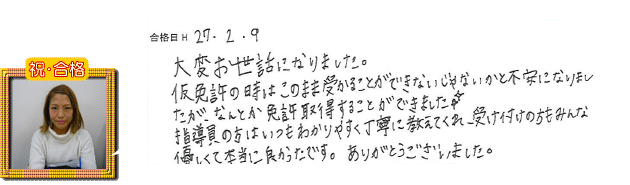 合格日 H 27.2.9
祝・合格
大変お世話になりました。
仮免許の時はこのまま受かることができないじゃないかと不安になりまし
たが、なんとか免許取得することができました☆
指導員の方はいつもわかりやすく丁寧に教えてくれ、受け付けの方もみんな
優しくて本当に良かったです。ありがとうございました。